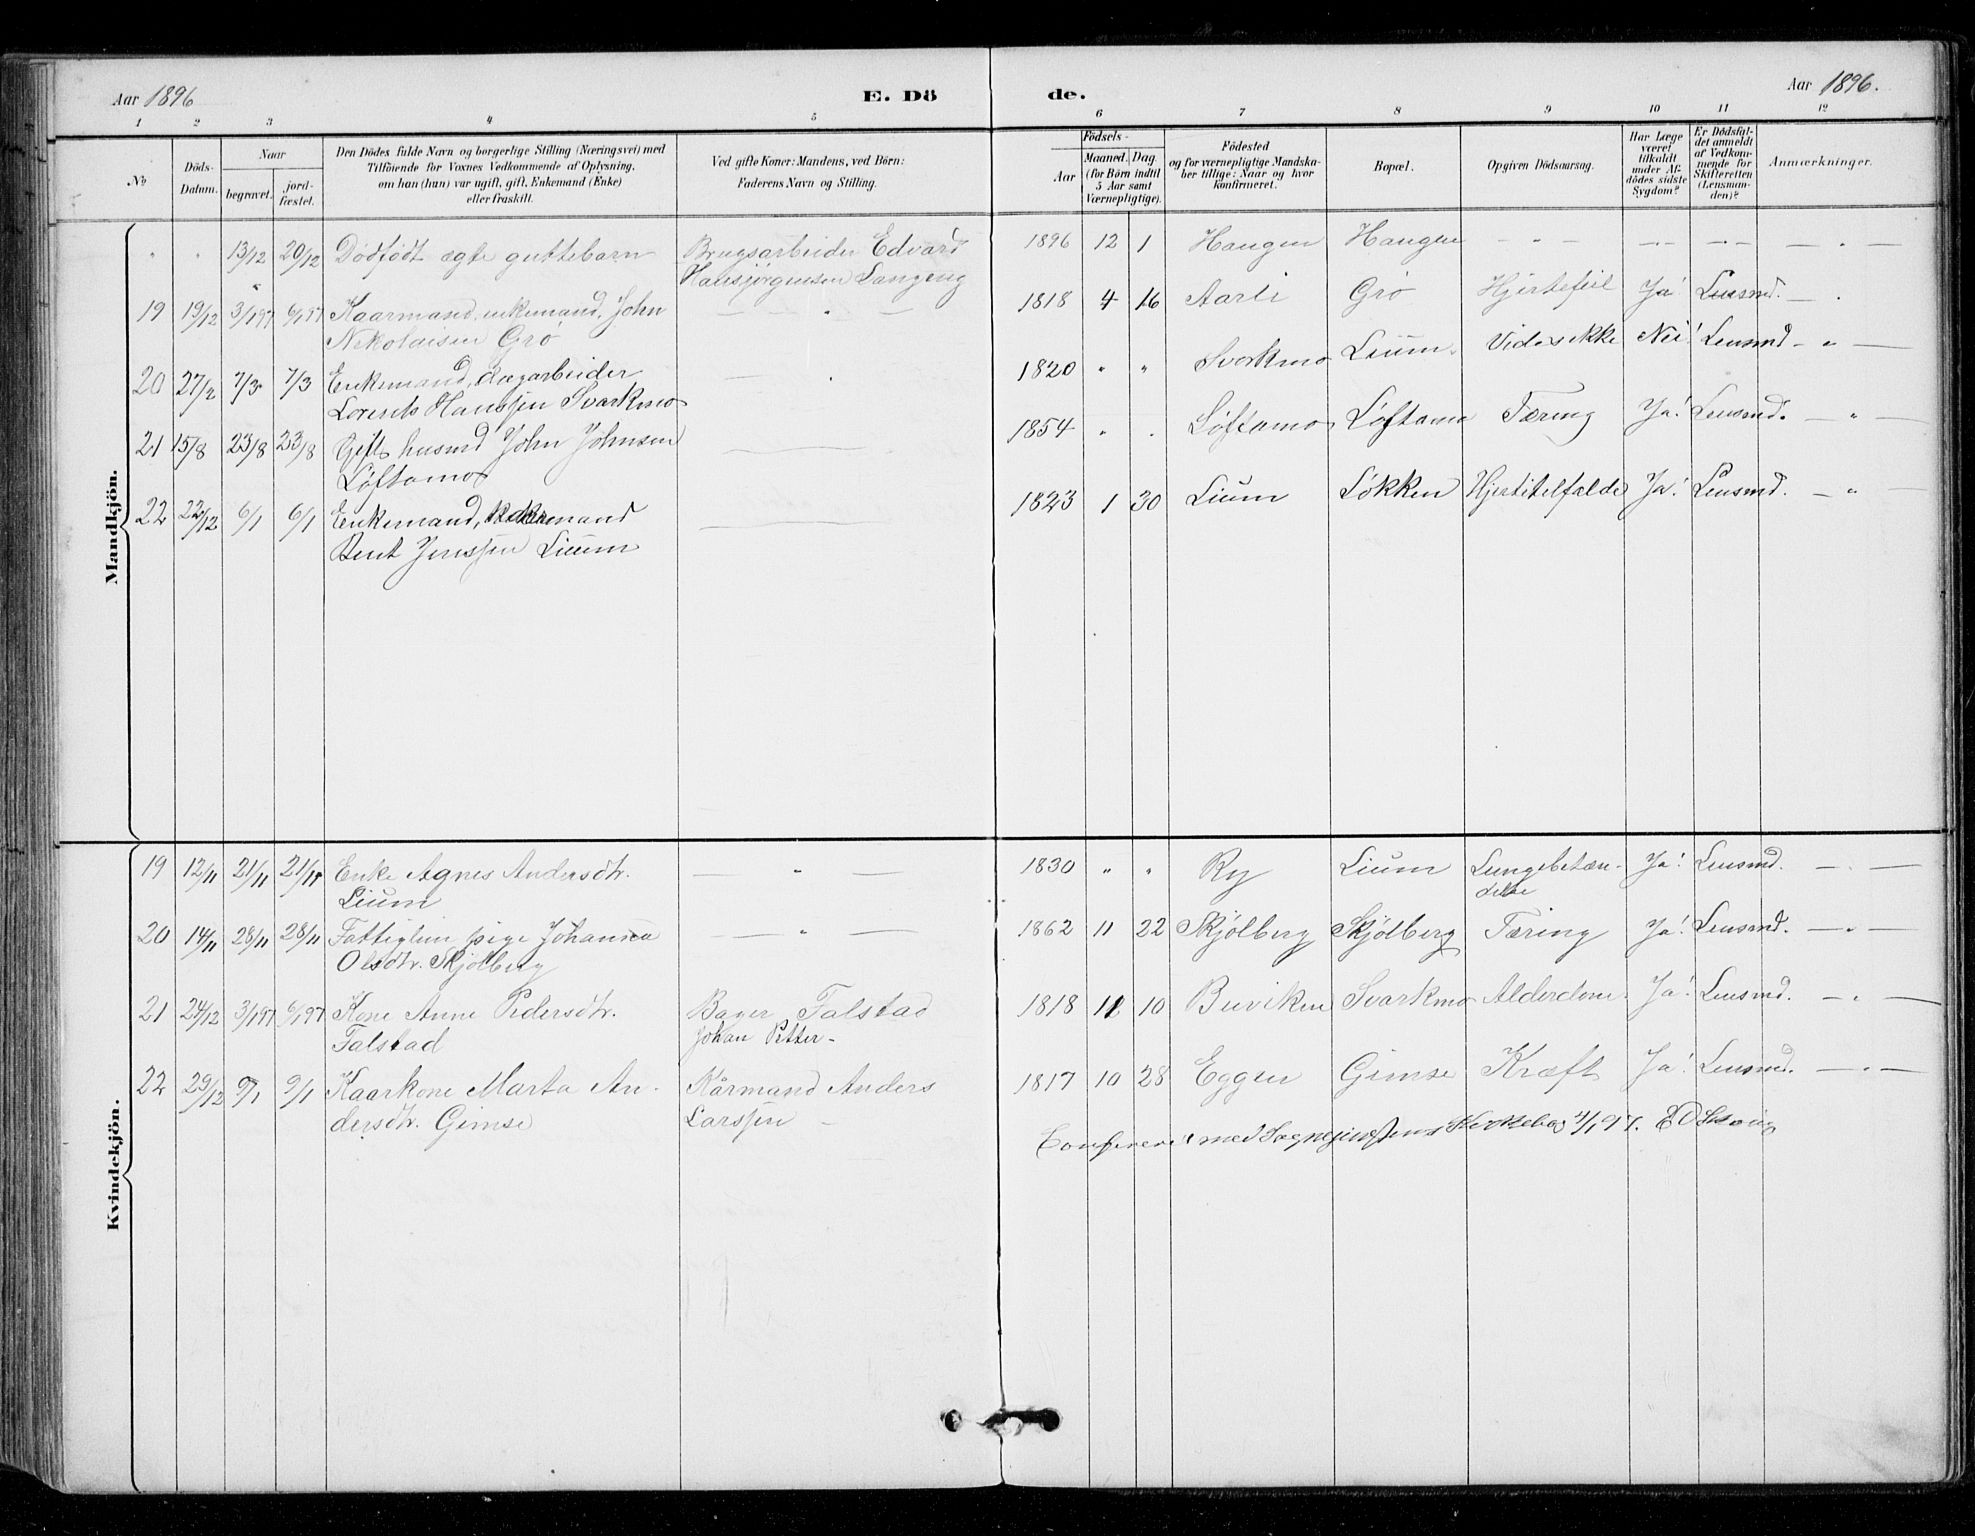 Aar 1896
E. Dö
de.
Aar 1896.
1 2 3 4 5 6 7 8 9 10 11 12
No
Döds-
Datum.
Naar
begravet.
jord-
fæstet.
Den Dödes fulde Navn og borgerlige Stilling (Næringsvei) med
Tilföiende for Voxnes Vedkommende af Oplysning,
om han (hun) var ugift, gift, Enkemand (Enke)
eller fraskilt.
Ved gifte Koner: Mandens, ved Börn:
Faderens Navn og Stilling.
Födsels-
Aar
Maaned. Dag.
(for Börn indtil
5 Aar samt
Værnepligtige).
Födested
og for værnepligtige Mandska-
ber tillige: Naar og hvor
konfirmeret.
Bopæl.
Opgiven Dödsaarsag.
Har Læge
været
tilkaldt
under Af-
dödes sidste
Sygdom?
Er Dödsfal-
det anmeldt
af Vedkom-
mende for
Skifteretten
(Lensman-
den)?
Anmærkninger.
Mandkjön.
" " 13/12 20/12 Dødfødt ægte guttebarn Brugsarbeider Edvard 1896 12 1 Haugen Haugen
Hansjörgensen Langeng
19 19/12 3/1 97 6/1 97 Kaarmand, enkemand, John 1818 4 16 Aarli Grö Hjertefeil Ja! Lensmd.
Nekolaisen Grö
20 27/2 7/3 7/3 Enkemand, dagarbeider 1820 " " Svorkmo Lium. Vides ikke Nei! Lensmd
Lorents Hanssen Svarkmo
21 15/8 23/8 23/8 Gift husmd John Johnsen 1854 " " Løftamo Løftamo Tæring Ja! Lensmd.
Løftamo
22 22/12 6/1 6/1 Enkemand, kårmand 1823 1 30 Lium Løkken Hjertetilfælde Ja! Lensmd.
Bent Jenssen Lium
Kvindekjön.
19 12/11 21/11 21/11 Enke Agnes Andersdtr. 1830 " " Ry Lium Lungebetæn- Ja! Lensmd.
Lium delse
20 14/11 28/11 28/11 Fattiglem pige Johanna 1862 11 22 Skjölberg Skjölberg Tæring Ja! Lensmd.
Olsdtr. Skjölberg
21 24/12 3/1 97 6/1 97 Kone Anne Pedersdtr. Bager Falstad 1818 12 10 Buviken Svarkmo Alderdom Ja! Lensmd.
Falstad Johan Petter
22 29/12 9/1 9/1 Kaarkone Marta An- Kårmand Anders 1817 10 28 Eggen Gimse Kræft Ja! Lensmd.
dersdtr. Gimse Larssen
Confereret med Sogneprestens Kirkebog 4/1 97.